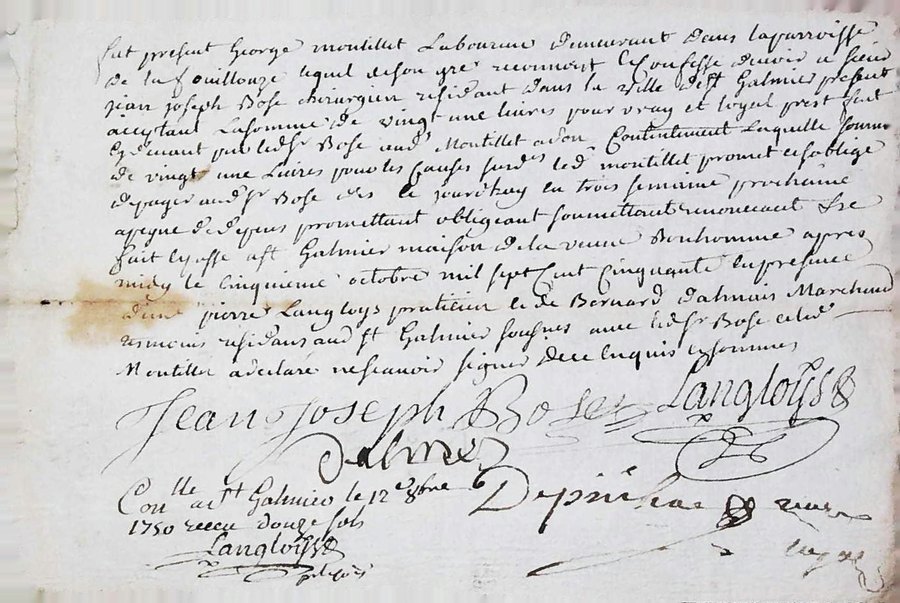 fut present George montillet Laboureur demeurant dans laparroisse
de la fouillouze lequel desongre reconnoit et confesse devoir a sieur
jean joseph Bose chirurgien residant dans la ville de st Galmier present
aceptant Lasomme de vingt une livres pour vray et loyal prest fait
cydevant par ledsr Bose aud Montillet adon Contentement Laquelle somme
de vingt une Livres pour les Causes susdes led montillet promet et soblige
depayer audsr Bose dès le jourdhuy en trois semaine prochaine
apeyne de depens promettant obligeant soumettant renonceant &re
fait et passe ast Galmier maison de la veuve Bonhomme apres
midy le cinquieme octobre mil sept Cent Cinquante en presence
de pierre Langloys praticien et de Bernard dalmais Marchand
residans aud st Galmier sousnes avec ledsr Bose et led
Montillet adeclaré nescavoir signer dece enquis et somme
Jean Joseph Bose Langloys
Dalmes
Conlle a st Galmier le 12e 8bre
1750 receu douze sols
Langloys